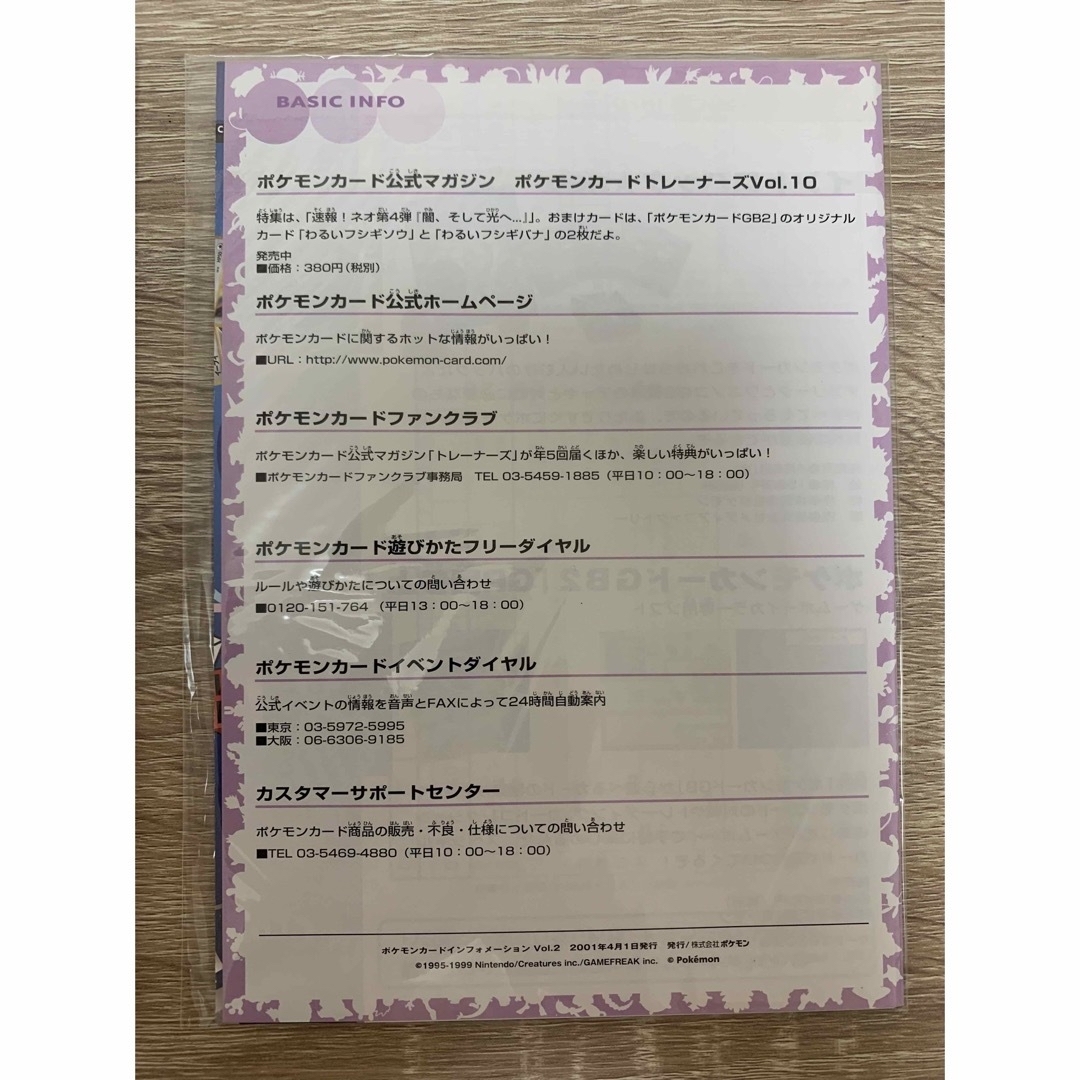 BASIC INFO
ポケモンカード公式マガジン　ポケモンカードトレーナーズVol.10
特集は、「速報！ネオ第4弾『闇、そして光へ...』」。おまけカードは、「ポケモンカードGB2」のオリジナル
カード「わるいフシギソウ」と「わるいフシギバナ」の2枚だよ。
発売中
■価格：380円（税別）
ポケモンカード公式ホームページ
ポケモンカードに関するホットな情報がいっぱい！
■URL：http://www.pokemon-card.com/
ポケモンカードファンクラブ
ポケモンカード公式マガジン「トレーナーズ」が年5回届くほか、楽しい特典がいっぱい！
■ポケモンカードファンクラブ事務局　TEL 03-5459-1885（平日10：00〜18：00）
ポケモンカード遊びかたフリーダイヤル
ルールや遊びかたについての問い合わせ
■0120-151-764 （平日13：00〜18：00）
ポケモンカードイベントダイヤル
公式イベントの情報を音声とFAXによって24時間自動案内
■東京：03-5972-5995
■大阪：06-6306-9185
カスタマーサポートセンター
ポケモンカード商品の販売・不良・仕様についての問い合わせ
■TEL 03-5469-4880（平日10：00〜18：00）
ポケモンカードインフォメーション Vol.2　2001年4月1日発行　発行/株式会社ポケモン
©1995-1999 Nintendo/Creatures inc./GAMEFREAK inc.　© Pokémon